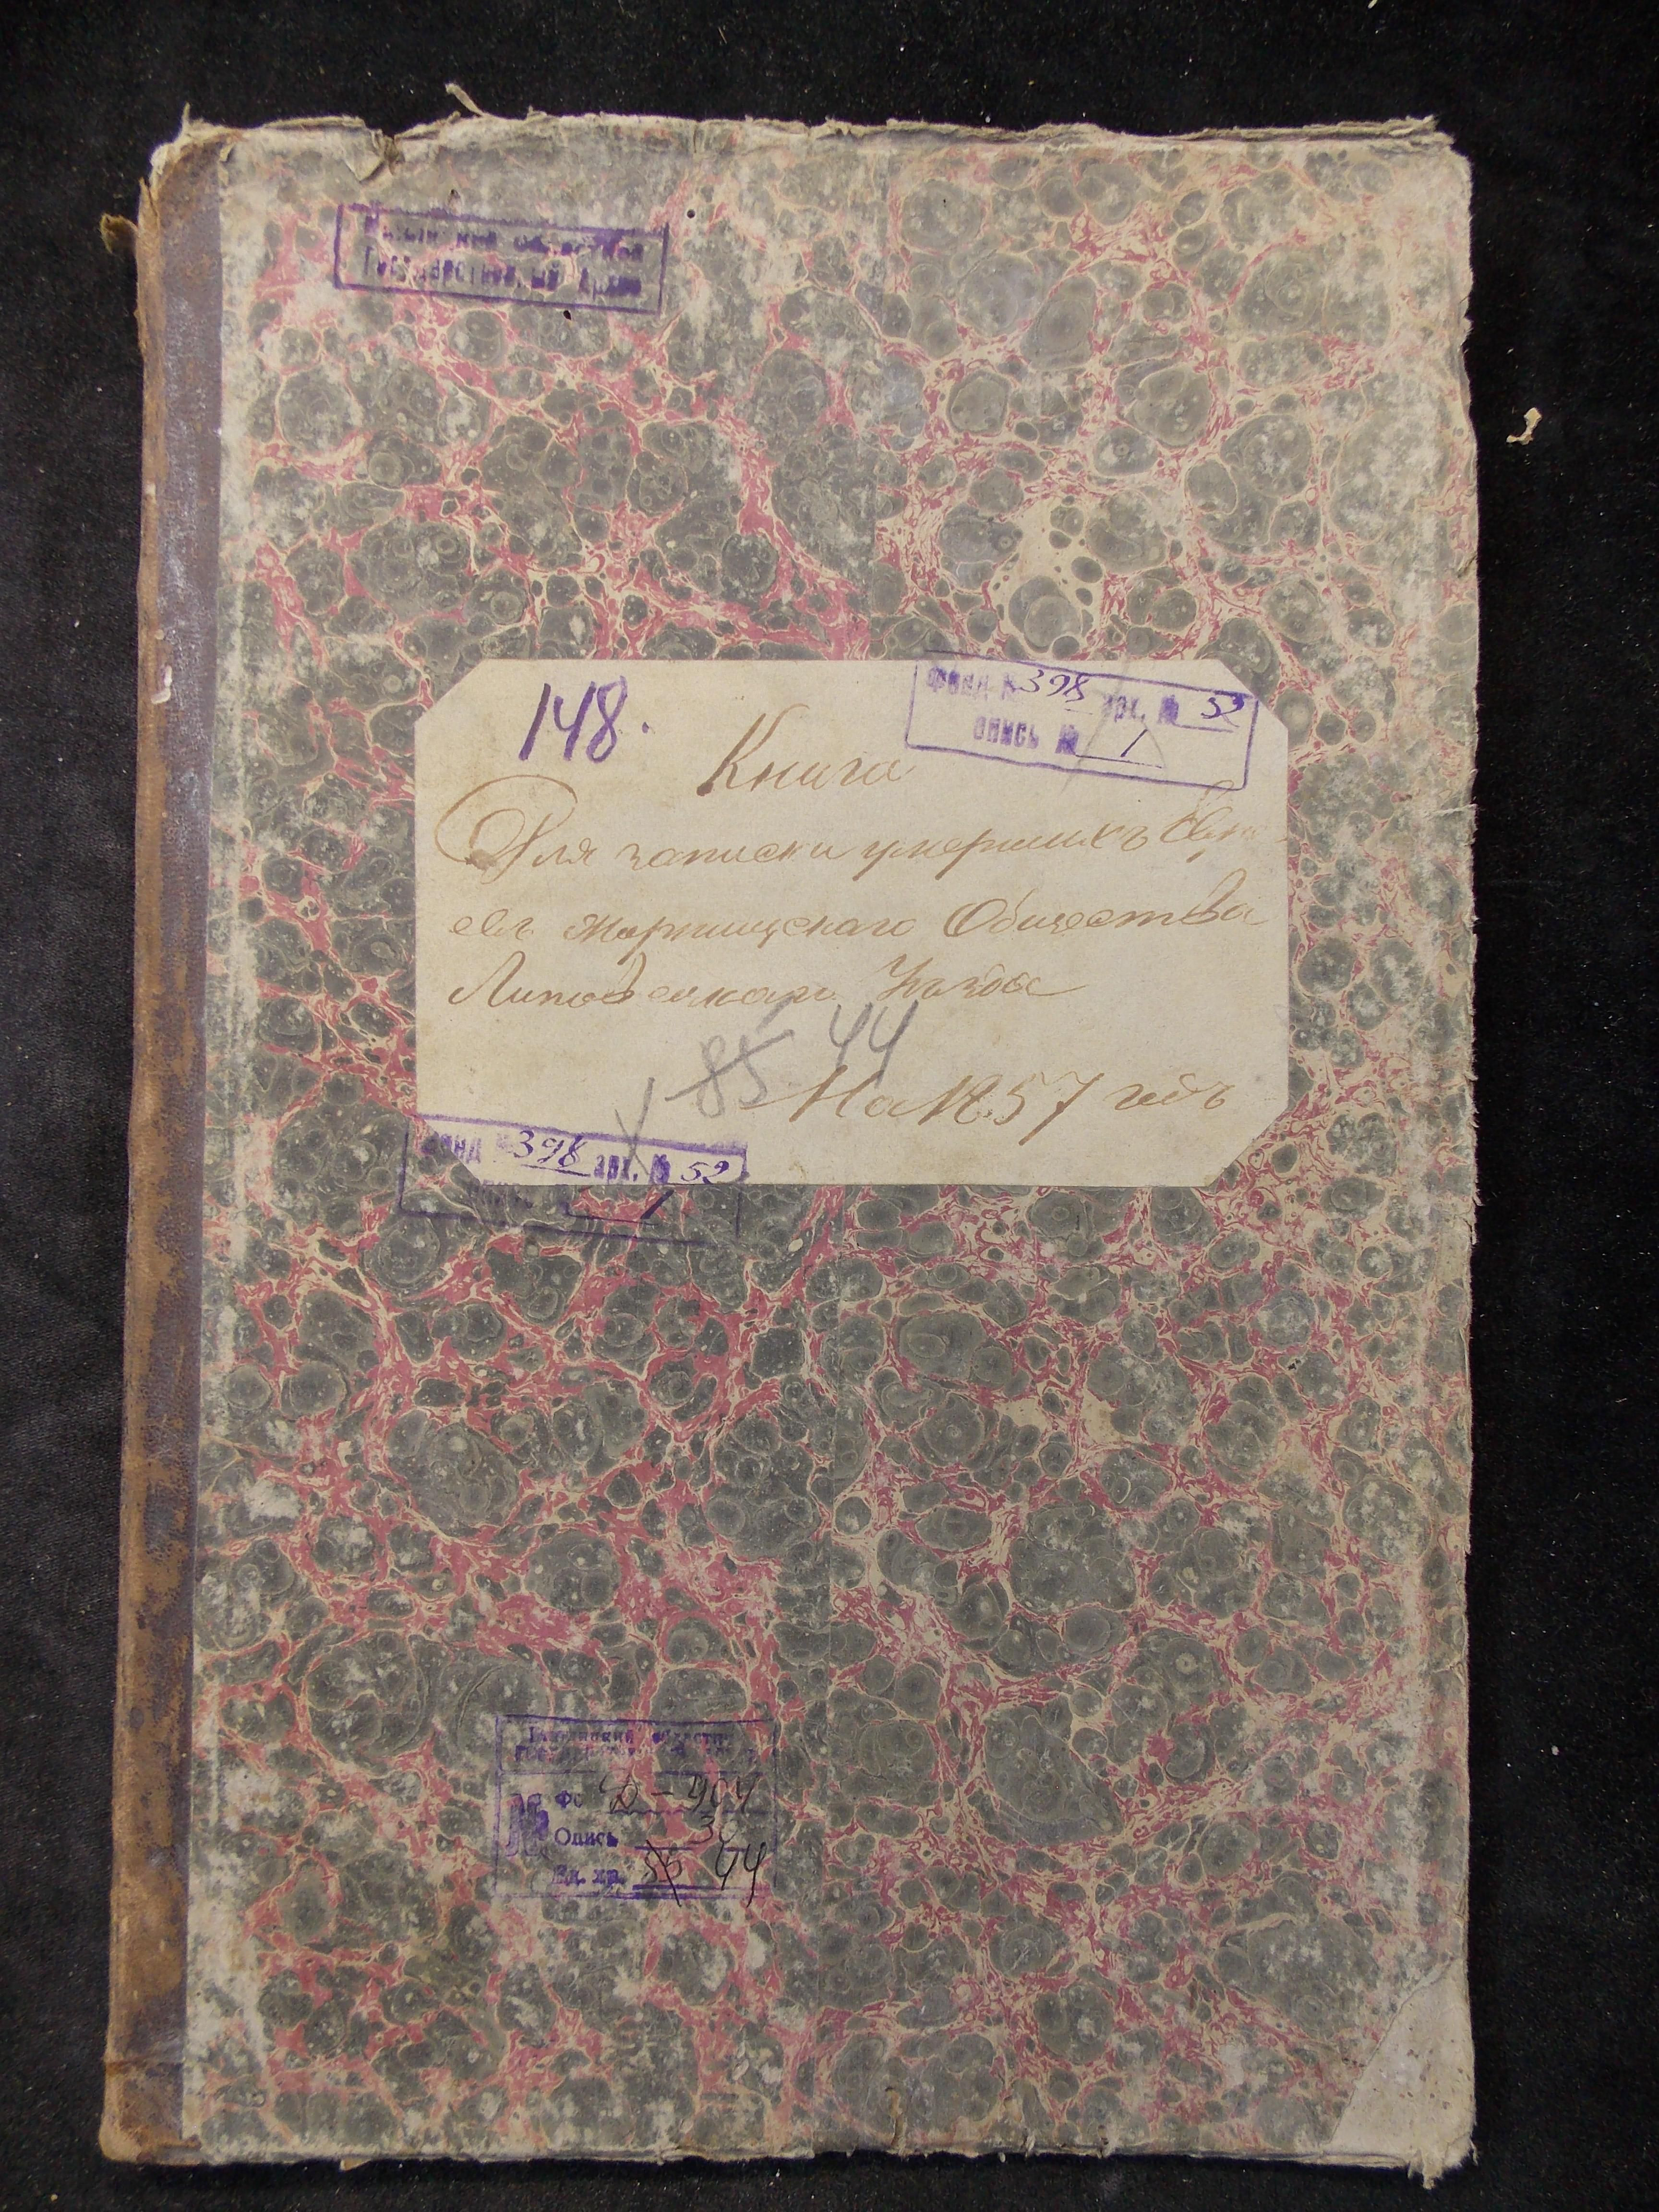 Государственный Архив
148.
Фонд № 398 арх. № 52
опись № 1
Книга
Для записки умершихъ Евре-
евъ Жорнищскаго Общества
Липовецкаго Уѣзда
85 44
На 1857 годъ
Фонд № 398 арх. № 52
опись № 1
Винницкий областн.
государственный
Фо Д-904
№ Опись 30
Ед. хр. 36 44